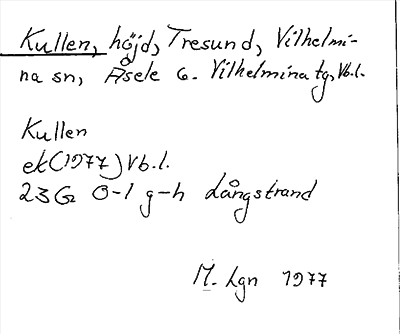 Kullen, höjd, Tresund, Vilhelmi-
na sn, Åsele G. Vilhelmina tg, Vb.l.
Kullen
ek (1977) Vb.l.
23G 0-1 g-h Långstrand
M. Lgn 1977